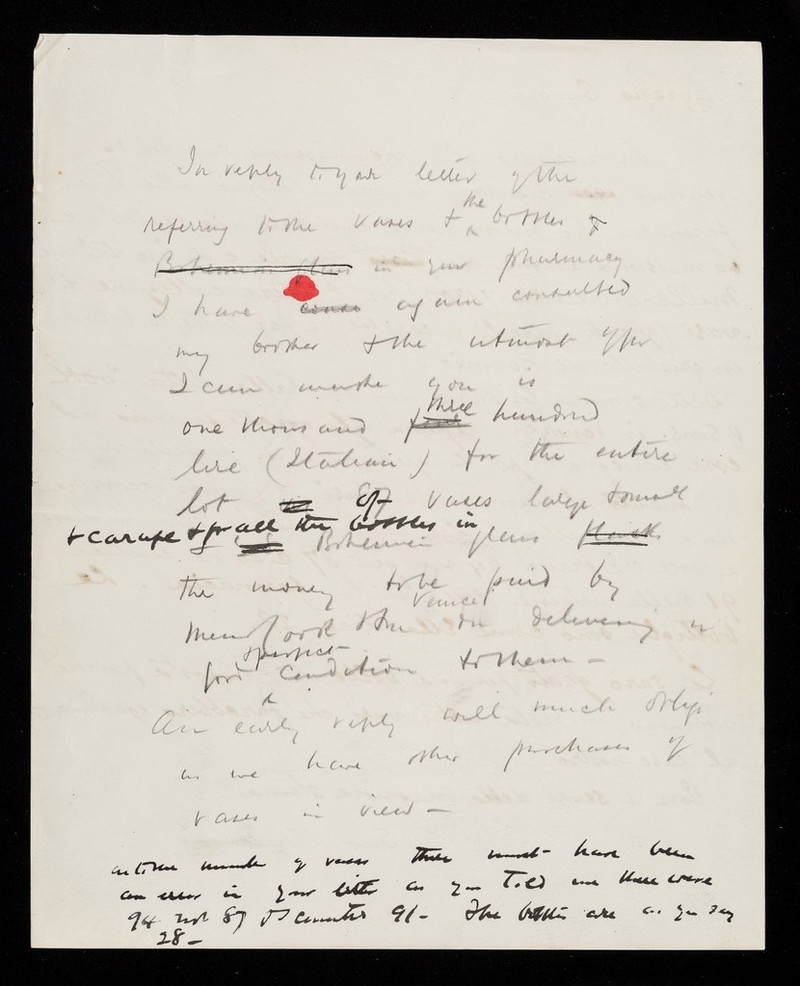 In reply to your letter of the
referring to the vases & the bottles &
Bohemian glass in your pharmacy
I have again consulted
my brother & the utmost offer
I can make you is
one thousand three hundred
lire (Italian) for the entire
lot of vases large & small
& carafe & for all the bottles in
Bohemian glass
the money to be paid by
Venice
on delivering in
& perfect
good condition to them –
An early reply will much oblige
as we have other purchases of
vases in view –
as to the number of vases there must have been
an error in your letter as you told me there were
94 not 87 & I counted 91 – The bottles are as you say
28 –